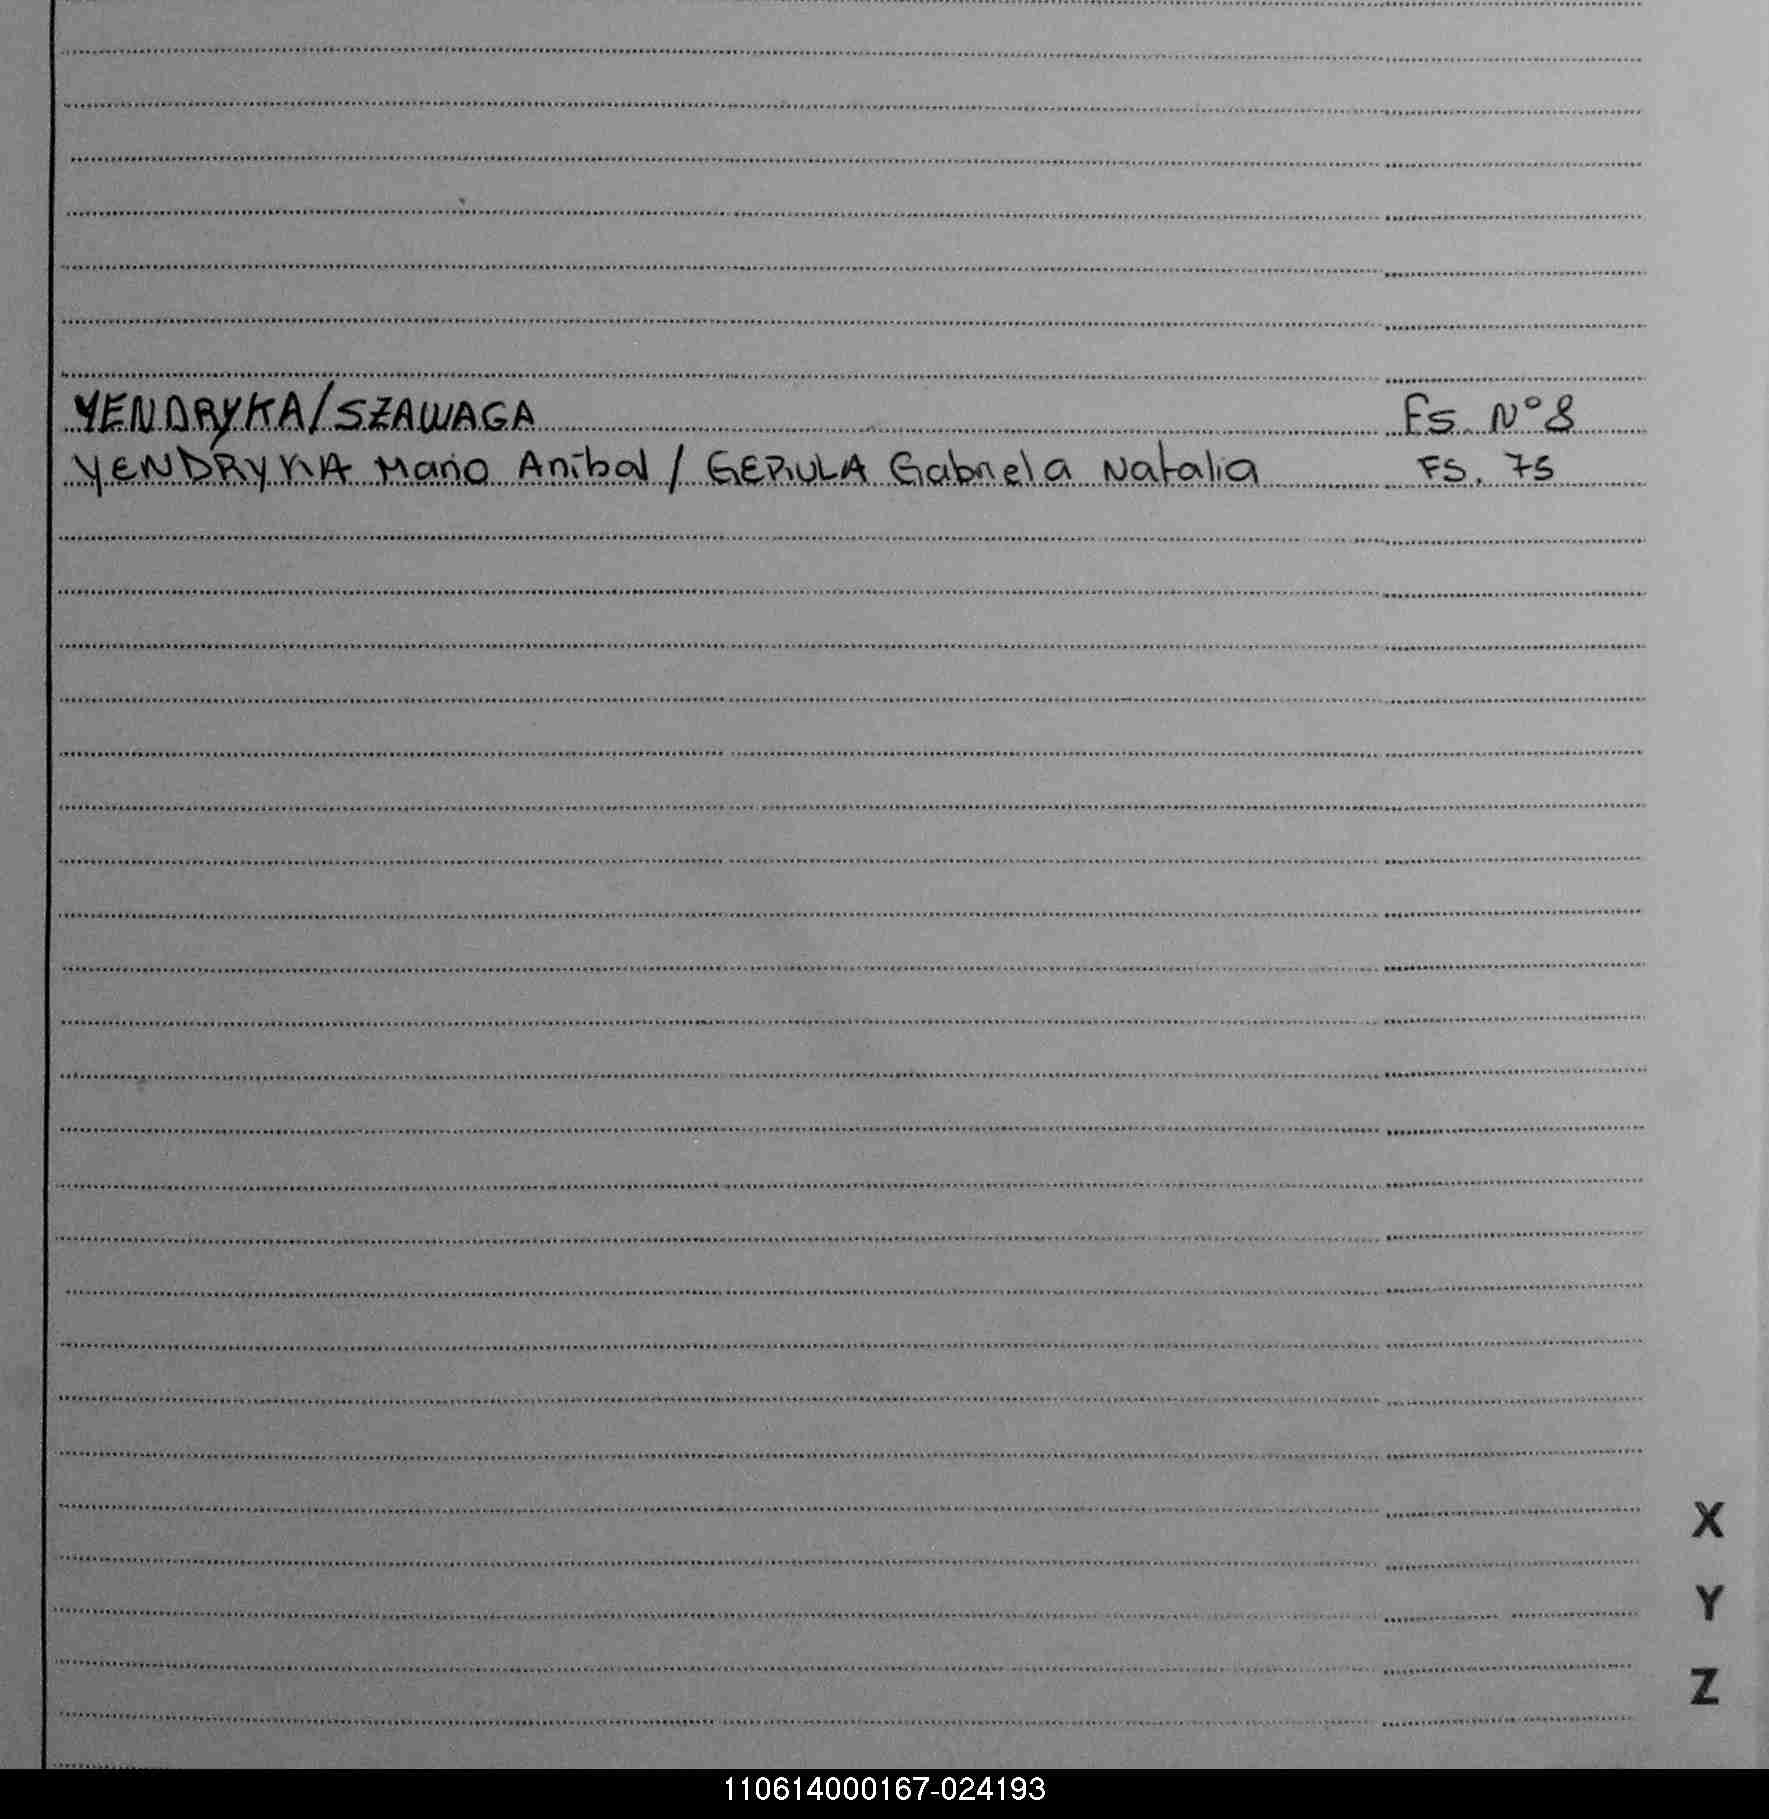 YENDRYKA/SZAWAGA Fs. Nº 8
YENDRYKA Mario Anibal / GERULA Gabriela Natalia FS. 75
X
Y
Z
110614000167-024193